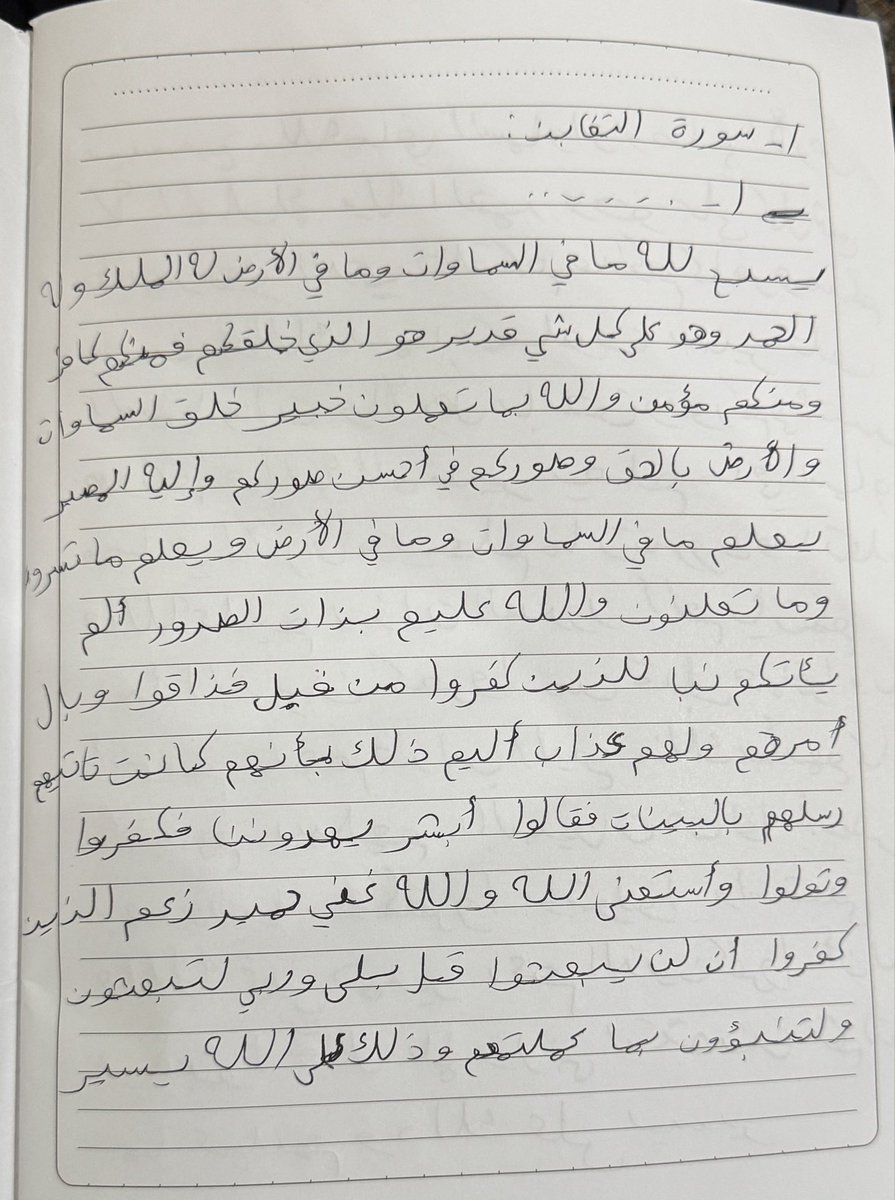 ١- سورة التغابن:
١-
يسبح لله ما في السماوات وما في الأرض له الملك وله
الحمد وهو على كل شي قدير هو الذي خلقكم فمنكم كافر
ومنكم مؤمن والله بما تعملون خبير خلق السماوات
والأرض بالحق وصوركم في أحسن صوركم وإليه المصير
يعلم ما في السماوات وما في الأرض ويعلم ما تسرون
وما تعلنون والله عليم بذات الصدور ألم
يأتكم نبا للذين كفروا من قبل فذاقوا وبال
أمرهم ولهم عذاب أليم ذلك بأنهم كانت تاتيهم
رسلهم بالبينات فقالوا أبشر يهدوننا فكفروا
وتولوا وأستغنى الله والله غني حميد زعم الذين
كفروا أن لن يبعثوا قل بلى وربي لتبعثون
ولتنبؤون بما عملتم وذلك على الله يسير